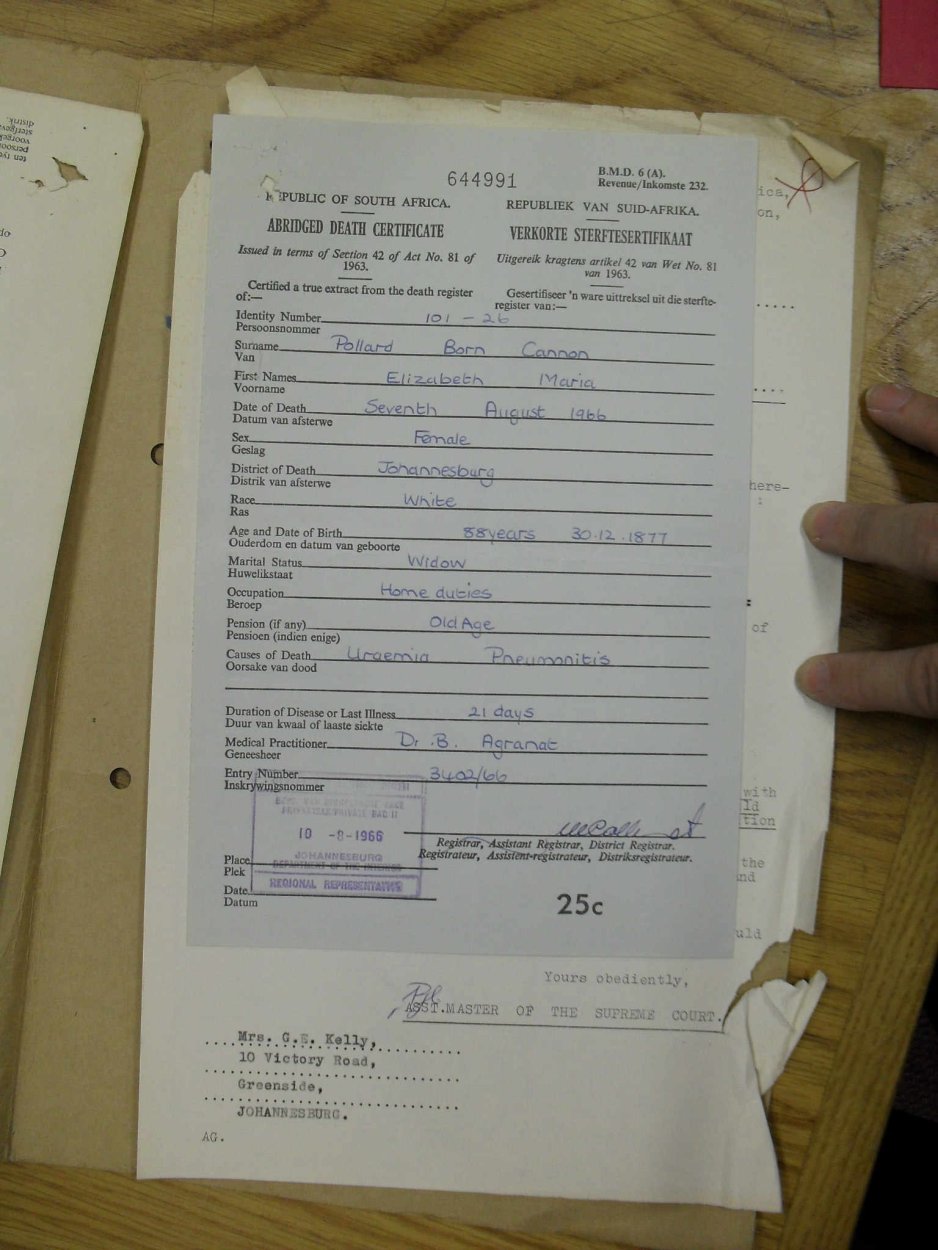 644991
B.M.D. 6 (A).
Revenue/Inkomste 232.
REPUBLIC OF SOUTH AFRICA.
REPUBLIEK VAN SUID-AFRIKA.
ABRIDGED DEATH CERTIFICATE
VERKORTE STERFTESERTIFIKAAT
Issued in terms of Section 42 of Act No. 81 of
1963.
Uitgereik kragtens artikel 42 van Wet No. 81
van 1963.
Certified a true extract from the death register
of:—
Gesertifiseer 'n ware uittreksel uit die sterfte-
register van:—
Identity Number 101 - 26
Persoonsnommer
Surname Pollard Born Cannon
Van
First Names Elizabeth Maria
Voorname
Date of Death Seventh August 1966
Datum van afsterwe
Sex Female
Geslag
District of Death Johannesburg
Distrik van afsterwe
Race White
Ras
Age and Date of Birth 88 years 30.12.1877
Ouderdom en datum van geboorte
Marital Status Widow
Huwelikstaat
Occupation Home duties
Beroep
Pension (if any) Old Age
Pensioen (indien enige)
Causes of Death Uraemia Pneumonitis
Oorsake van dood
Duration of Disease or Last Illness 21 days
Duur van kwaal of laaste siekte
Medical Practitioner Dr. B. Agranat
Geneesheer
Entry Number 3402/66
Inskrywingsnommer
10 -8-1966
JOHANNESBURG
DEPARTMENT OF THE INTERIOR
REGIONAL REPRESENTATIVE
Registrar, Assistant Registrar, District Registrar.
Registrateur, Assistent-registrateur, Distriksregistrateur.
Place
Plek
Date
Datum
25c
ica,
on,
here-
:
of
with
ld
tion
the
nd
uld
Yours obediently,
ASST. MASTER OF THE SUPREME COURT.
Mrs. G.E. Kelly,
10 Victory Road,
Greenside,
JOHANNESBURG.
AG.